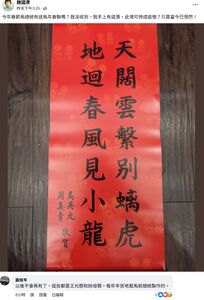 魏國彥
昨天下午3:25
今年春節馬總統有送馬年春聯嗎？我沒收到，我手上有這張，此情可待成追憶？只是當今已惘然！
天闊雲繫別螭虎
地迴春風見小龍
馬英九
周美青
敬賀
以後不會再有了，這些都是王光慈和她母親，每年辛苦地幫馬前總統製作的。
6小時
讚
回覆
已編輯